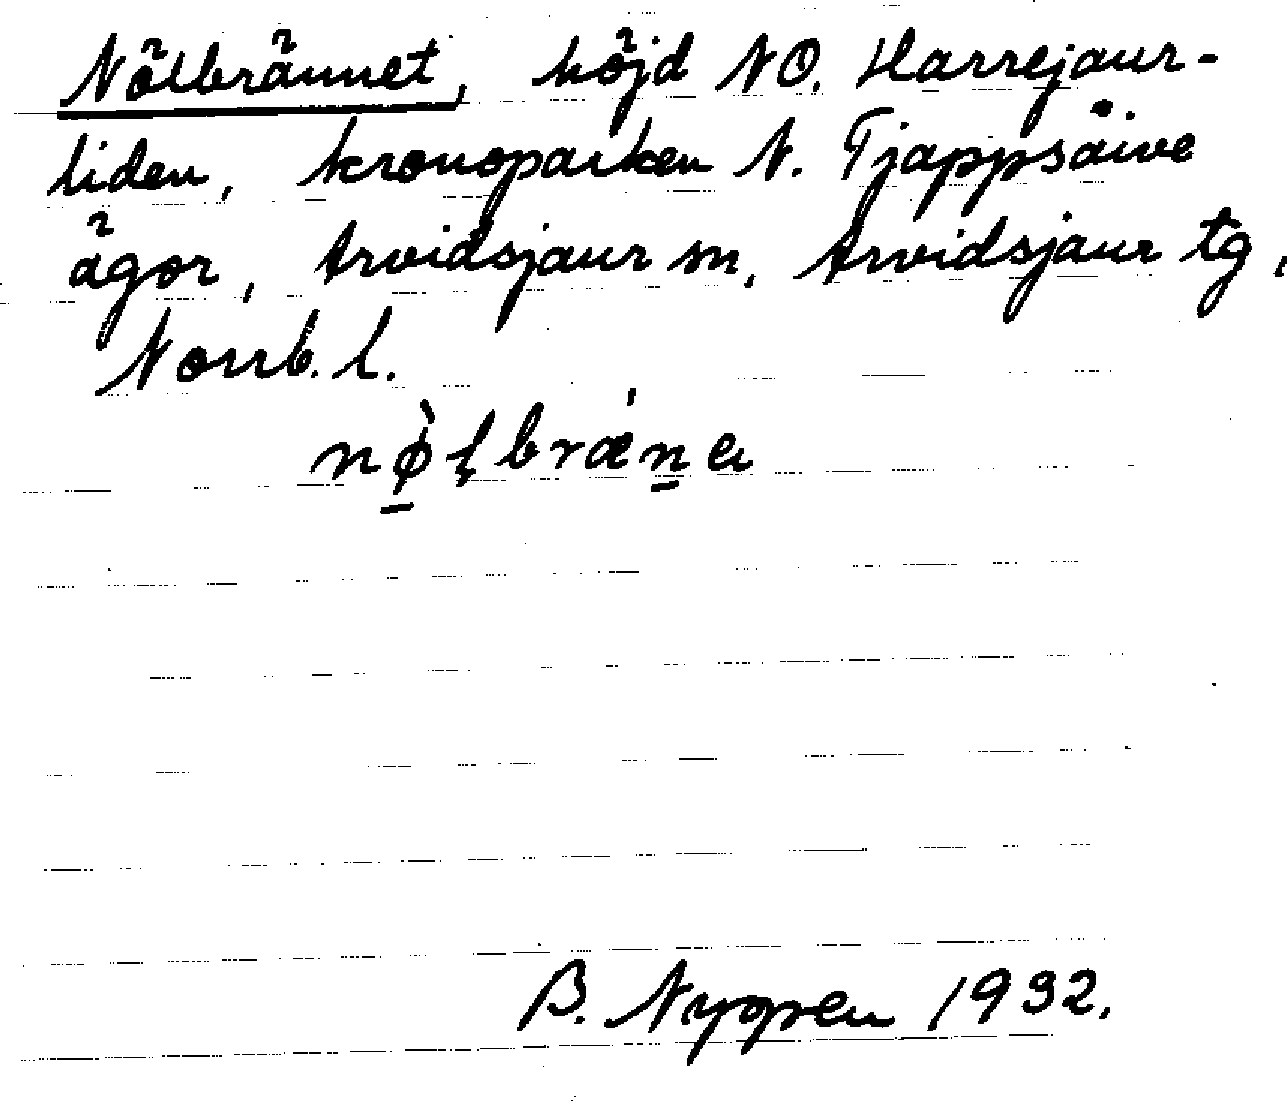 Nölbrännet, höjd NO. Harrejaur-
liden, kronoparken N. Tjappsäive
ägor, Arvidsjaur sn, Arvidsjaur tg,
Norrb. l.
nø̀ḷbrǽna
B. Nygren 1932.